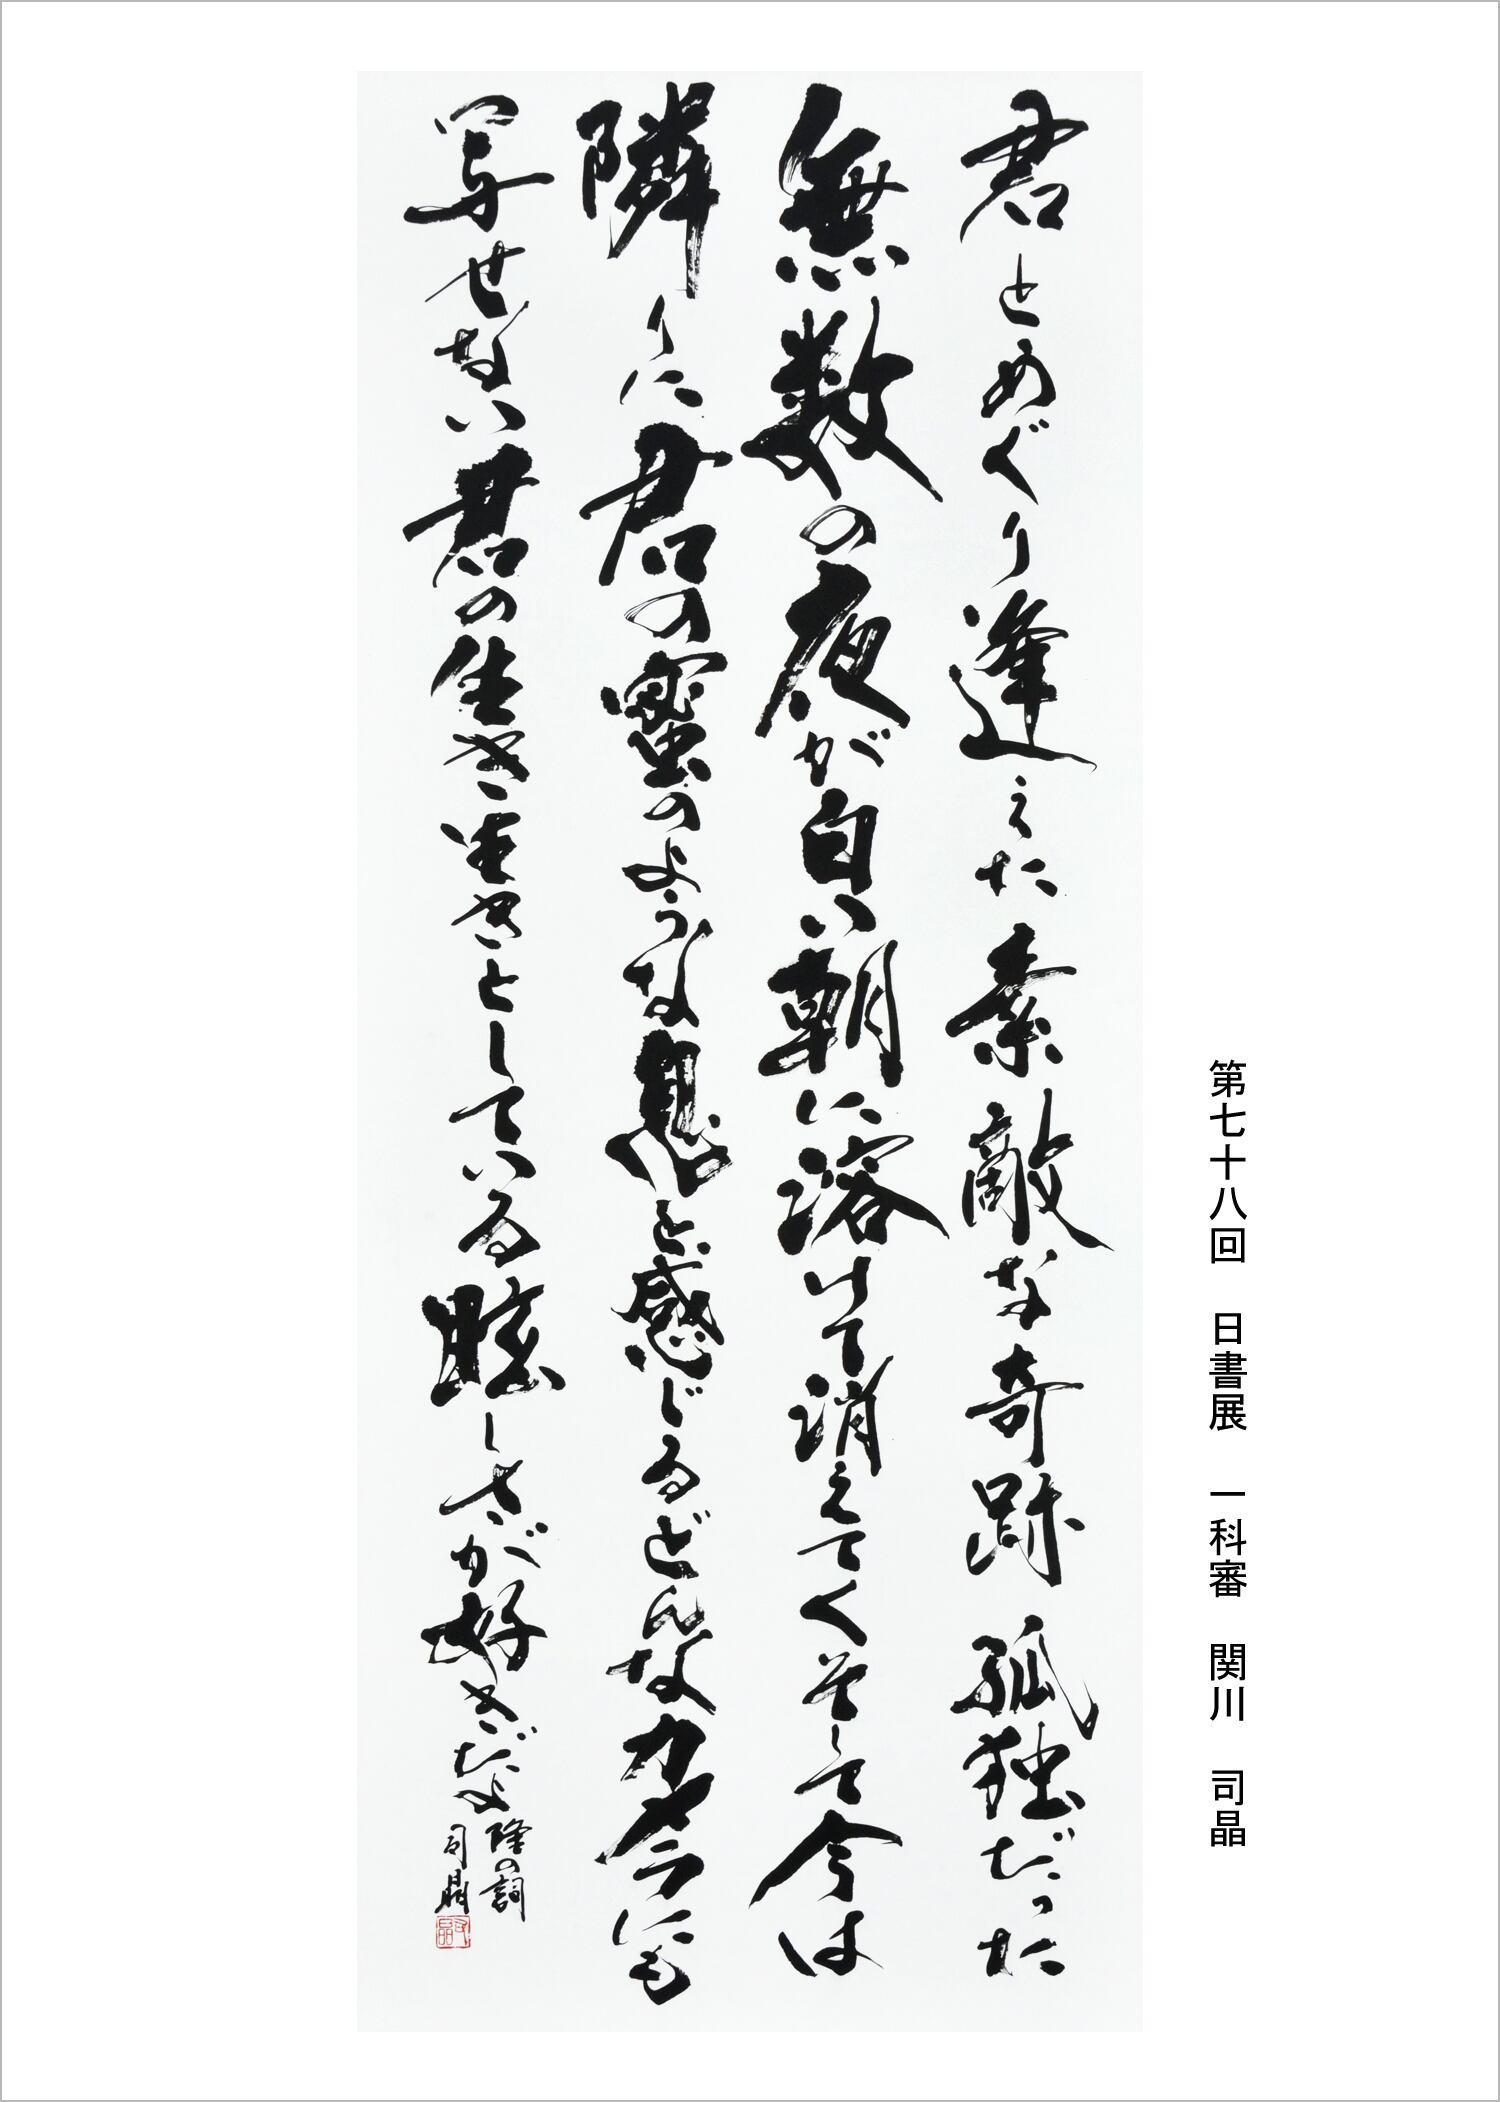 第七十八回 日書展 一科審 関川 司晶
君とめぐり逢えた素敵な奇跡孤独だった
無数の夜が白い朝に溶けて消えてくそして今は
隣りに君の蜜のような息と感じるどんなカメラにも
写せない君の生き生きとしている眩しさが好きだよ
隆の詞
司晶